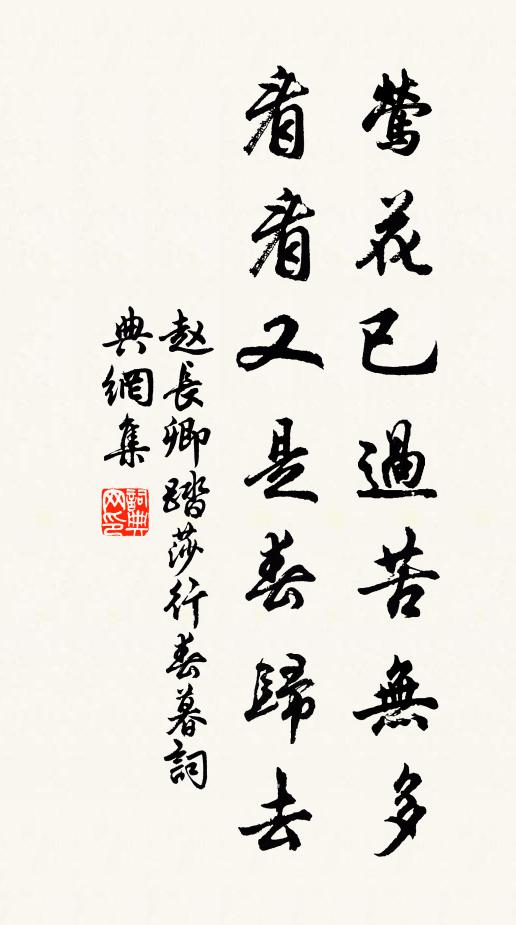 鶯花已過苦無多
看看又是春歸去
赵長卿踏莎行春暮詞
典網集
詞典
网印